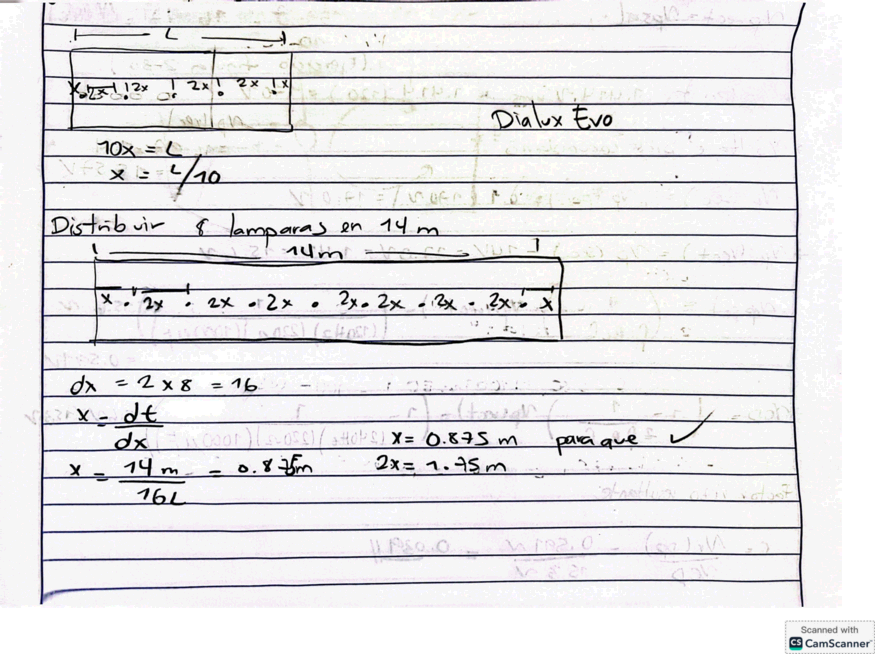 L
x 2x 2x 2x 2x x
Dialux Evo
10x = L
x = L/10
Distribuir 8 lamparas en 14 m
14m
x 2x 2x 2x 2x 2x 2x 2x x
dx = 2 x 8 = 16
x = dt/dx
x = 0.875 m para que ✓
x = 14 m/16L = 0.875m 2x = 1.75 m
Scanned with
CS CamScanner